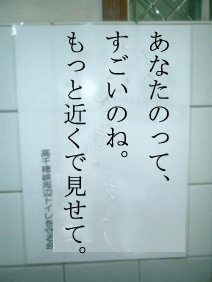 あなたのって、
すごいのね。
もっと近くで見せて。
高千穂峡周辺トイレを守る会